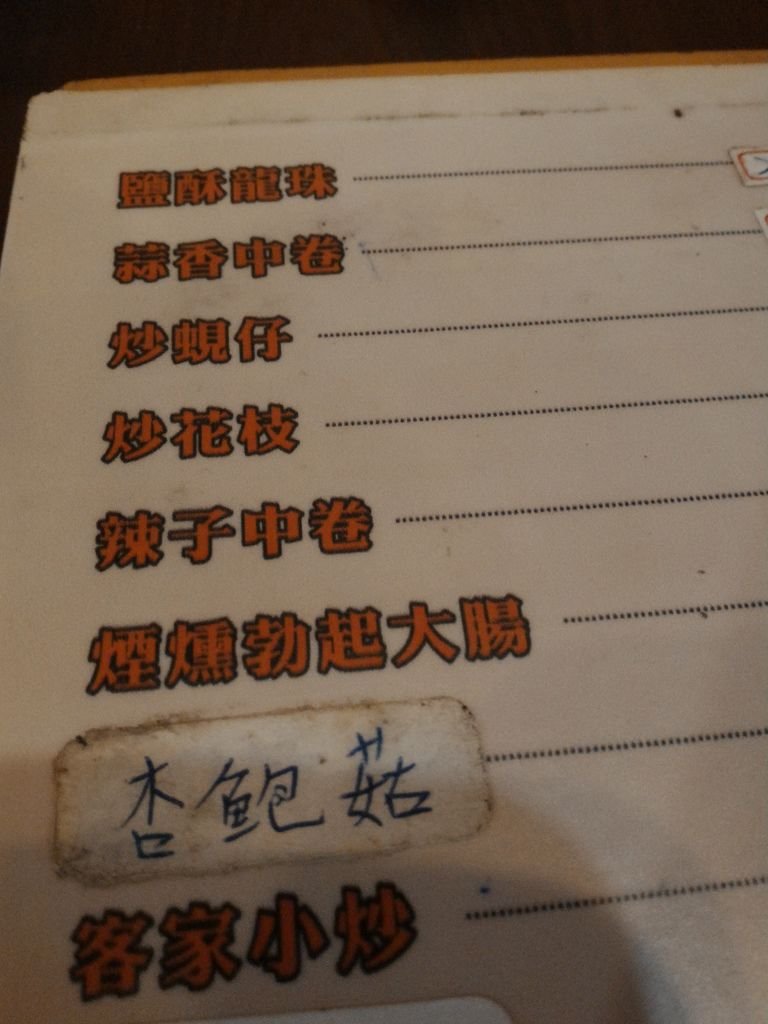 鹽酥龍珠
蒜香中卷
炒蜆仔
炒花枝
辣子中卷
煙燻勃起大腸
杏鮑菇
客家小炒